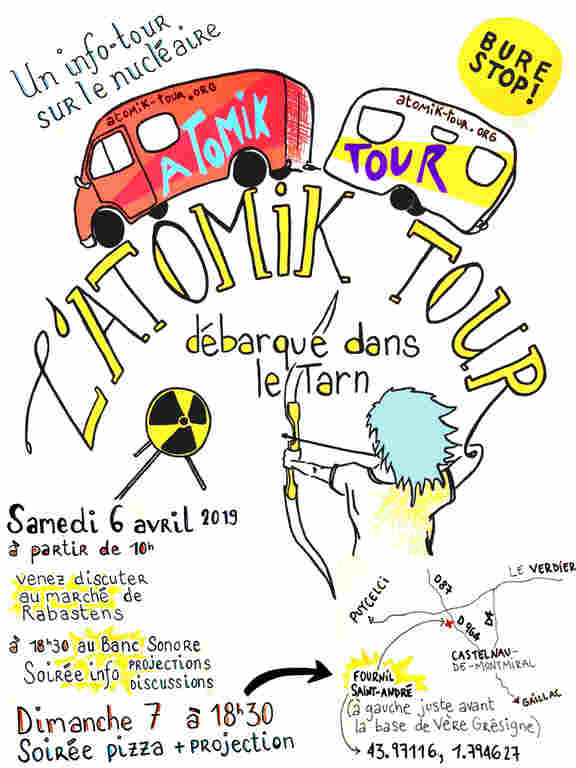 Un info-tour
sur le nucléaire
BURE
STOP!
atomik-tour.org
ATOMIK
atomik-tour.org
TOUR
L'ATOMIK TOUR
débarque dans
le Tarn
Samedi 6 avril 2019
à partir de 10h
venez discuter
au marché de
Rabastens
à 18h30 au Banc Sonore
Soirée info PROJECTIONS
DISCUSSIONS
Dimanche 7 à 18h30
Soirée pizza + projection
PUYCELCI
D87
LE VERDIER
D964
CASTELNAU-
DE-MONTMIRAL
GAILLAC
FOURNIL
SAINT-ANDRÉ
(à gauche juste avant
la base de Vère Grésigne)
43.97116, 1.794627